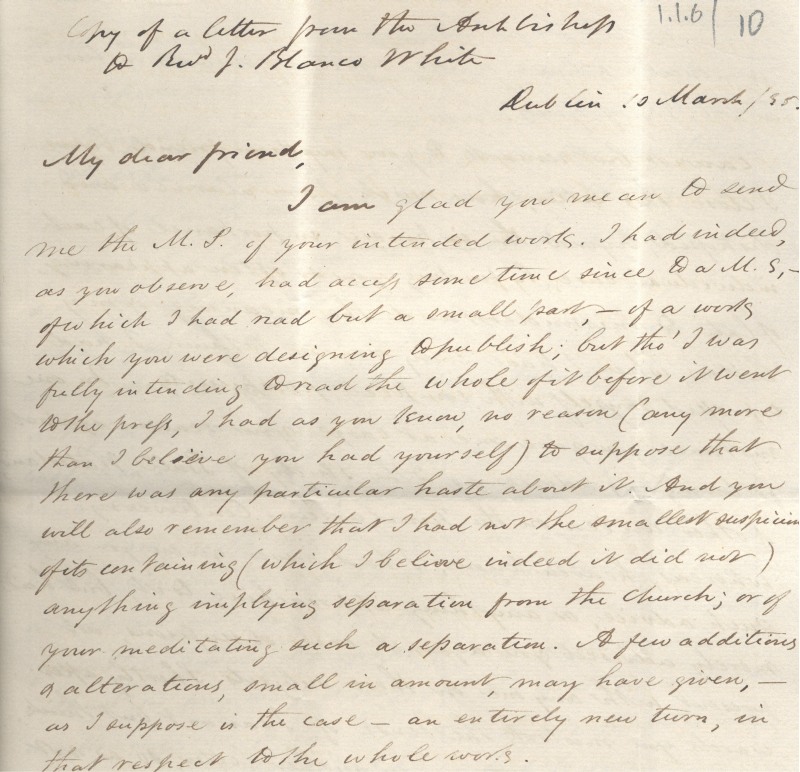 1.1.6/ 10
Copy of a letter from the Archbishop
to Revd J. Blanco White
Dublin 10 March/35.
My dear friend,
I am glad you mean to send
me the M.S. of your intended work. I had indeed,
as you observe, had access some time since to a M.S, –
of which I had read but a small part, – of a work
which you were designing to publish; but tho' I was
fully intending to read the whole of it before it went
to the press, I had as you know, no reason (any more
than I believe you had yourself) to suppose that
there was any particular haste about it. And you
will also remember that I had not the smallest suspicion
of its containing (which I believe indeed it did not)
anything implying separation from the Church; or of
your meditating such a separation. A few additions
& alterations, small in amount, may have given, –
as I suppose is the case – an entirely new turn, in
that respect to the whole work.